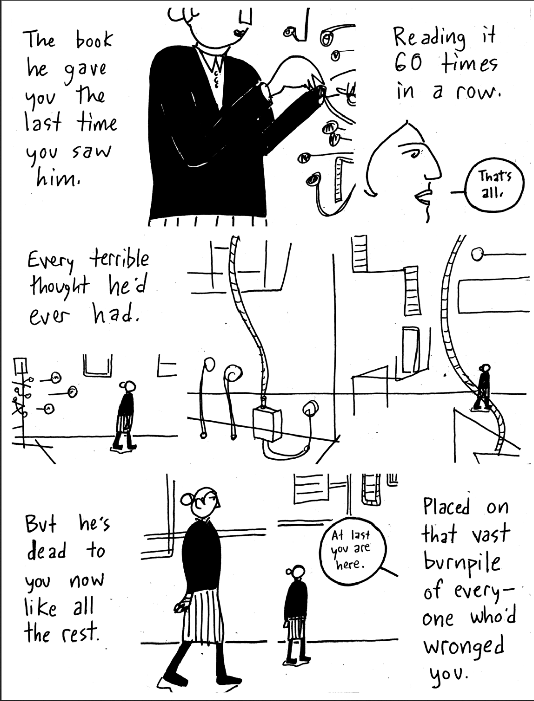 The book
he gave
you the
last time
you saw
him.
Reading it
60 times
in a row.
That's
all.
Every terrible
thought he'd
ever had.
But he's
dead to
you now
like all
the rest.
At last
you are
here.
Placed on
that vast
burnpile
of every-
one who'd
wronged
you.